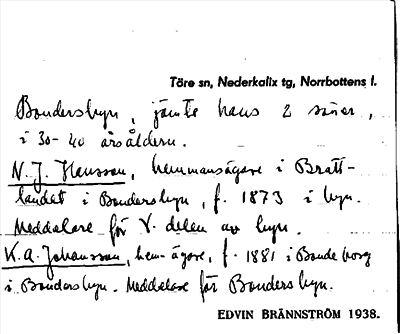 Töre sn, Nederkalix tg, Norrbottens l.
Bondersbyn, jämte hans 2 söner,
i 30-40 årsåldern.
N. J. Hansson, hemmansägare i Bratt-
landet i Bondersbyn, f. 1873 i byn.
Meddelare för V. delen av byn.
K. A. Johansson, hem-ägare, f. 1881 i Bondeborg
i Bondersbyn. Meddelare för Bondersbyn.
EDVIN BRÄNNSTRÖM 1938.